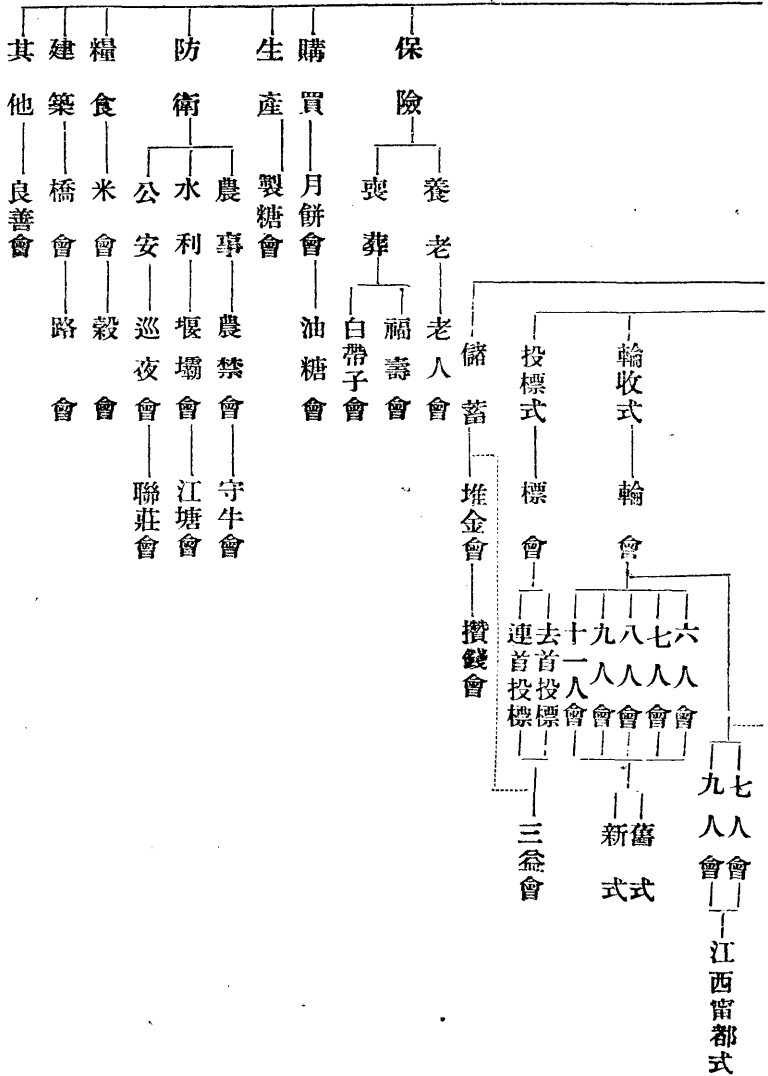 保險
養老
老人會
喪葬
福壽會
白帶子會
購買
月餅會
油糖會
生產
製糖會
防衛
農事
農禁會
守牛會
水利
堰壩會
江塘會
公安
巡夜會
聯莊會
糧食
米會
穀會
建築
橋會
路會
其他
良善會
輪收式
輪會
六人會
七人會
八人會
九人會
十一人會
舊式
新式
七人會
九人會
江西甯都式
投標式
標會
去首投標
連首投標
三益會
儲蓄
堆金會
攢錢會